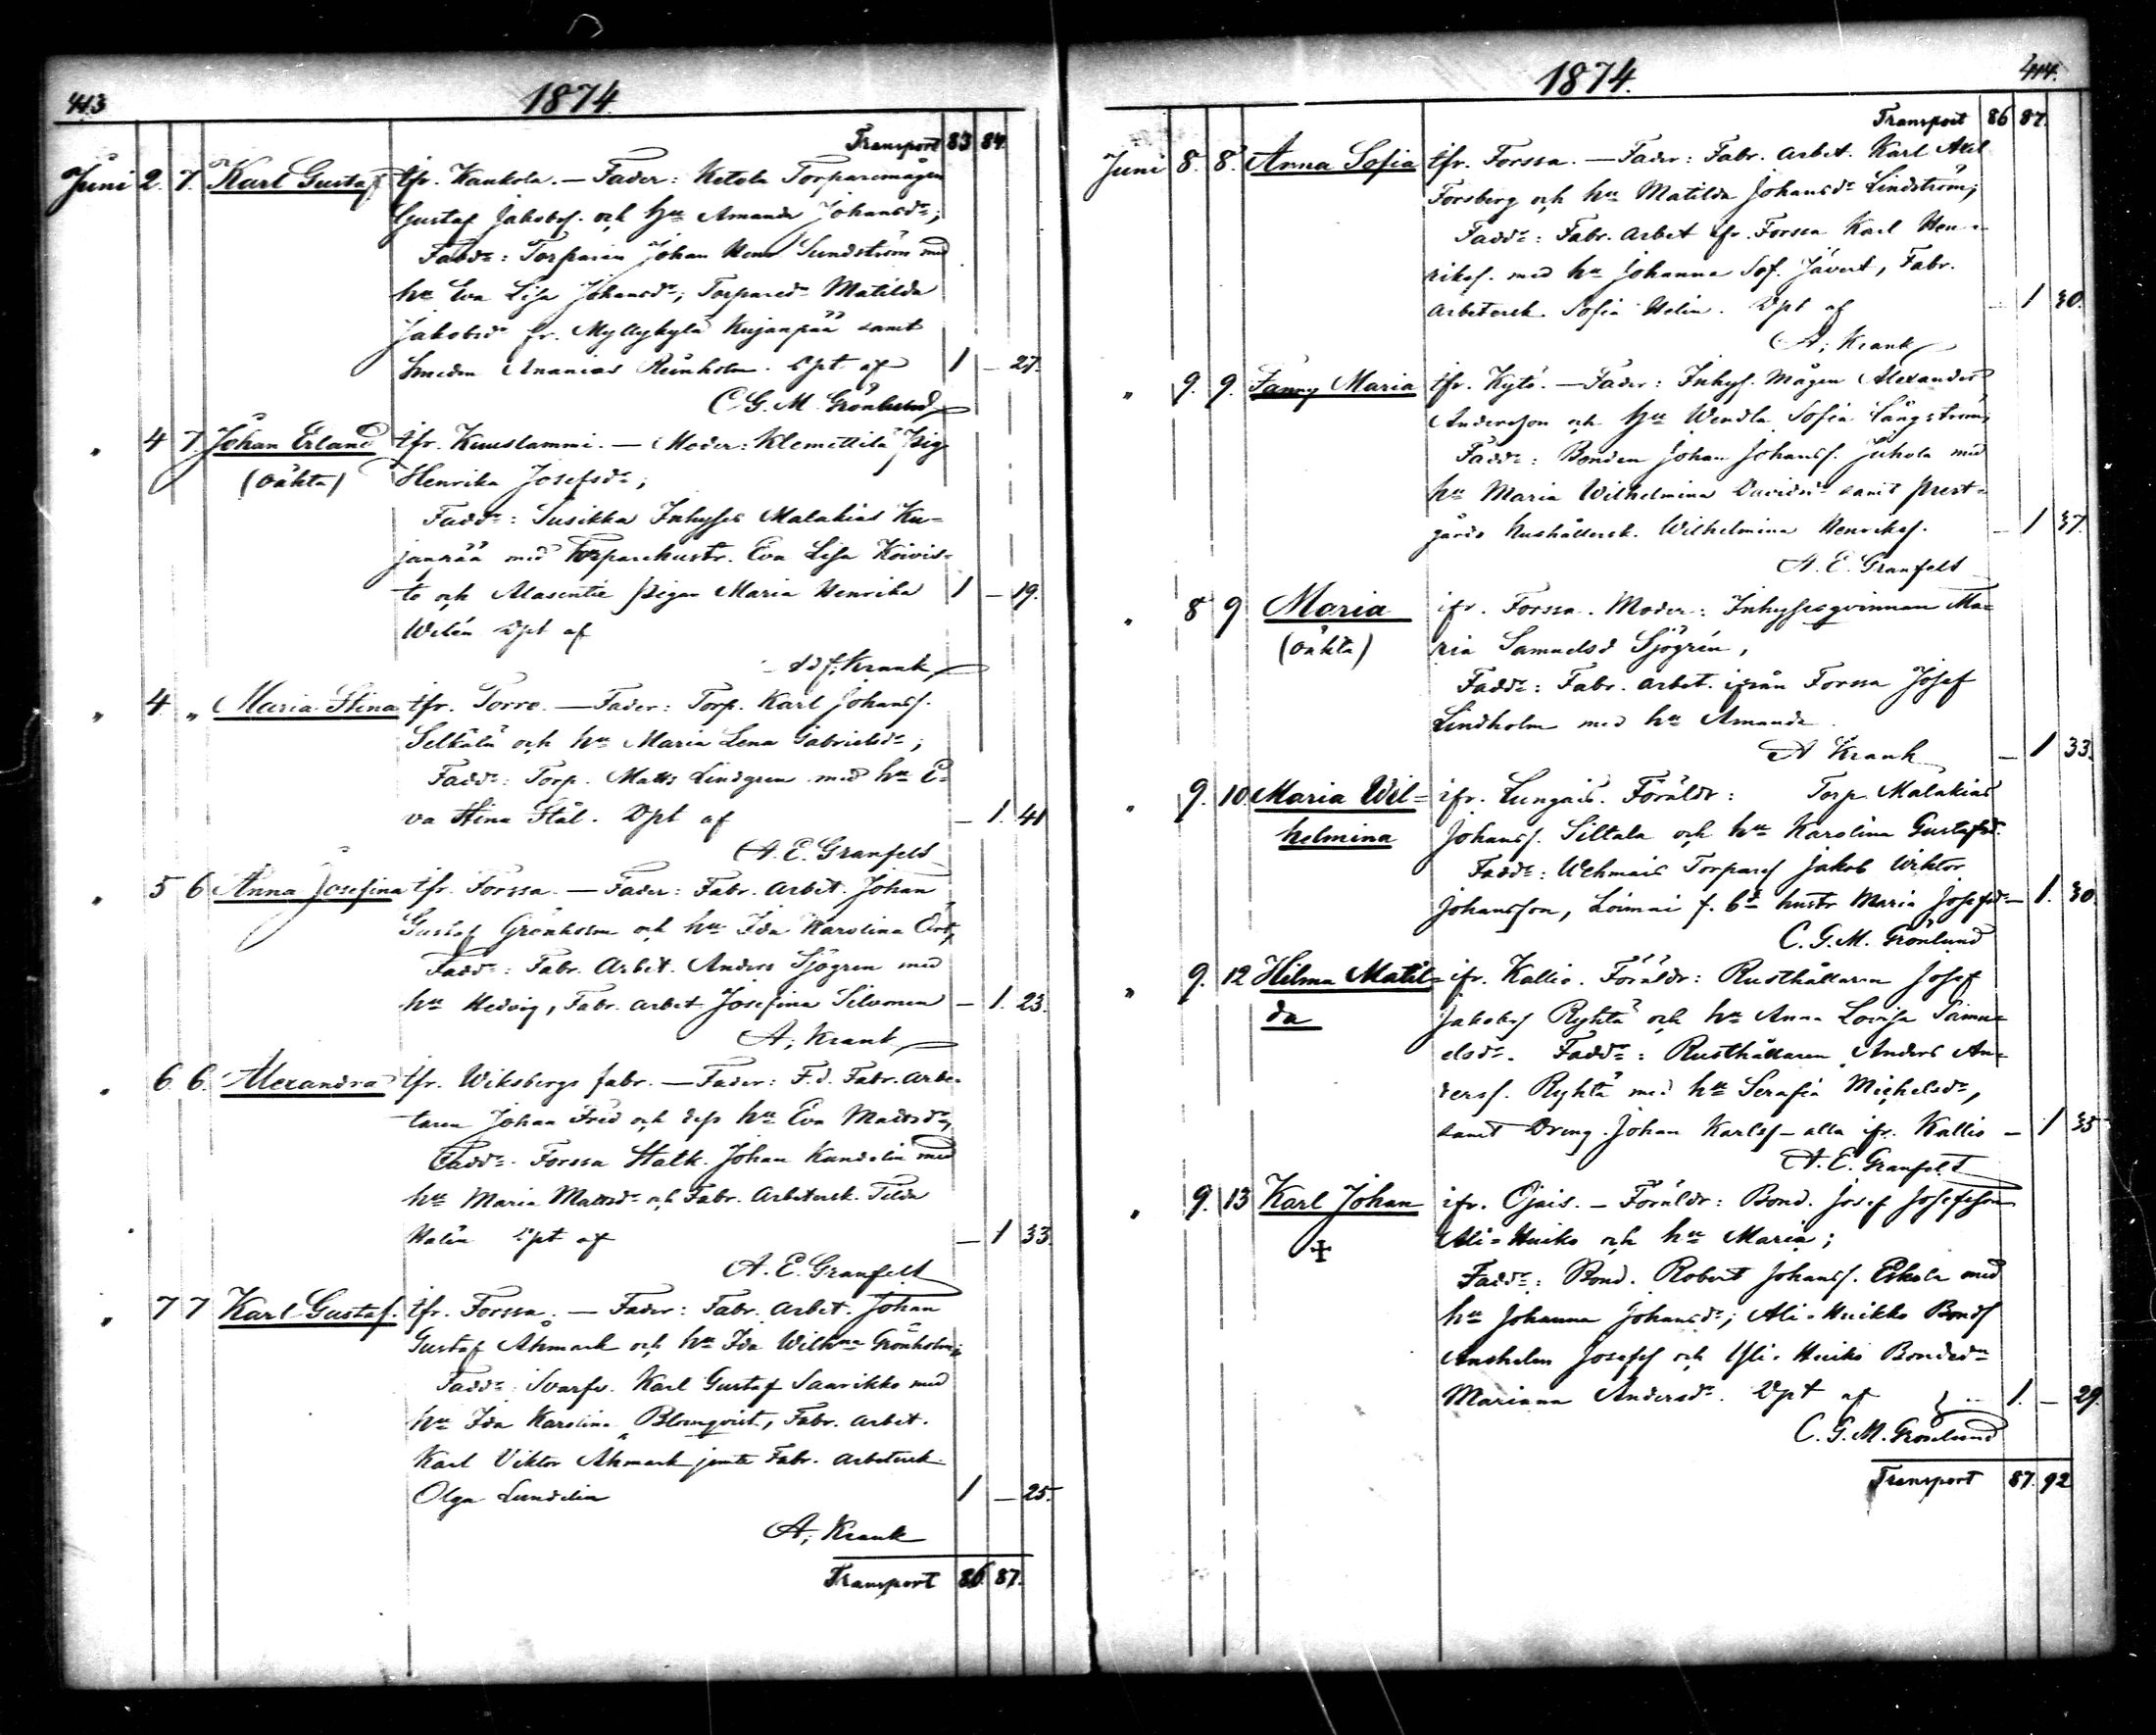 413
1874.
Transport 83 84.
Juni 2. 7. Karl Gustaf ifr. Kankola. — Fader: Ketola Torparemågen
Gustaf Jakobss. och hu Amanda Johansdr;
Faddr: Torparen Johan Henr Sundström med
hu Eva Lisa Johansdr; Torparedr Matilda
Jakobsdr fr. Myllykylä Kujanpää samt
Smeden Ananias Reinholm. Dpt af 1 – 27.
C. G. M. Grönlund
" 4 7. Johan Erland ifr. Kuuslammi. — Moder: Klemettilä Pig.
(oäkta) Henrika Josefsdr;
Faddr: Susikka Inhyses Malakias Ku-
janpää med Torparehustr. Eva Lisa Koivis-
to och Alasentie pigan Maria Henrika 1 – 19.
Welén Dpt af
Adf. Krank
" 4. " Maria Stina ifr. Torro. — Fader: Torp. Karl Johanss.
Selkälä och hu Maria Lena Gabrielsdr;
Faddr: Torp. Matts Lindgren med hu E-
va Stina Stål. Dpt af – 1. 41
A. E. Granfelt
" 5 6 Anna Josefina ifr. Forssa. — Fader: Fabr. Arbet. Johan
Gustaf Grönholm och hu Ida Karolina
Faddr: Fabr. Arbet. Anders Sjögren med
hu Hedvig, Fabr. arbet Josefina Silvonen – 1. 23.
A; Krank
" 6. 6. Alexandra ifr. Wiksbergs fabr. — Fader: F.d. Fabr. Arbe-
taren Johan Fred och dess hu Eva Mattsdr,
Faddr. Forssa Statk. Johan Kundelin med
hu Maria Mattsdr och Fabr. Arbetersk. Tilda
Dpt af – 1 33.
A. E. Granfelt
" 7 7 Karl Gustaf. ifr. Forssa. — Fader: Fabr. Arbet. Johan
Gustaf Ahmark och hu Ida Wilhna Grönholm;
Faddr: Svarfv. Karl Gustaf Saarikko med
hu Ida Karolina Blomqvist, Fabr. arbet.
Karl Viktor Ahmark jemte Fabr. arbetersk
Olga Lundelin 1 – 25.
A; Krank
Transport 86. 87.
414.
1874.
Transport 86 87.
Juni 8. 8. Anna Sofia ifr. Forssa. — Fader: Fabr. arbet. Karl Axel
Forsberg och hu Matilda Johansdr Lindström;
Faddr: Fabr. Arbet ifr. Forssa Karl Hen-
rikss. med hu Johanna Sof. Jävert, Fabr.
Arbetersk. Sofia Helin. Dpt af – 1 30.
A; Krank
" 9. 9. Fanny Maria ifr. Kytö. — Fader: Inhys. Mågen Alexander
Andersson och hu Wendla Sofia Långström;
Faddr: Bonden Johan Johanss. Juhola med
hu Maria Wilhelmina Davidsdr samt prest-
gårds Hushållersk. Wilhelmina Henrikss. – 1 37.
A. E. Granfelt
" 8 9 Maria ifr. Forssa. Moder: Inhysesqvinnan Ma-
(oäkta) ria Samuelsd Sjögrén,
Faddr: Fabr. arbet. ifrån Forssa Josef
Lindholm med hu Amanda.
A Krank – 1 33.
" 9. 10. Maria Wil- ifr. Lungais. Föräldr: Torp. Malakias
helmina Johanss. Siltala och hu Karolina Gustafsd.
Faddr: Wehmais Torpares Jakob Wiktor
Johansson, Loimai s. by hustr Maria Josefsdr – 1. 30.
C. G. M. Grönlund
" 9. 12 Hilma Matil- ifr. Kallio. Föräldr: Rusthållaren Josef
da Jakobss Ryhtä och hu Anna Lovisa Samu-
elsdr. Faddr: Rusthållaren Anders An-
derss. Ryhtä med hu Serafia Michelsdr,
samt Dreng. Johan Karlss – alla ifr. Kallio – 1 35
A. E. Granfelt
" 9. 13 Karl Johan ifr. Ojais. – Föräldr: Bond. Josef Josefsson
✝ Ali-Huiko och hu Maria;
Faddr: Bond. Robert Johanss. Eskola med
hu Johanna Johansdr; Ali-Huikko Bonds
Anshelm Josefss och Yli-Huiko Bondedr
Mariana Andersdr. Dpt af 1. – 29.
C. G. M. Grönlund
Transport 87. 92